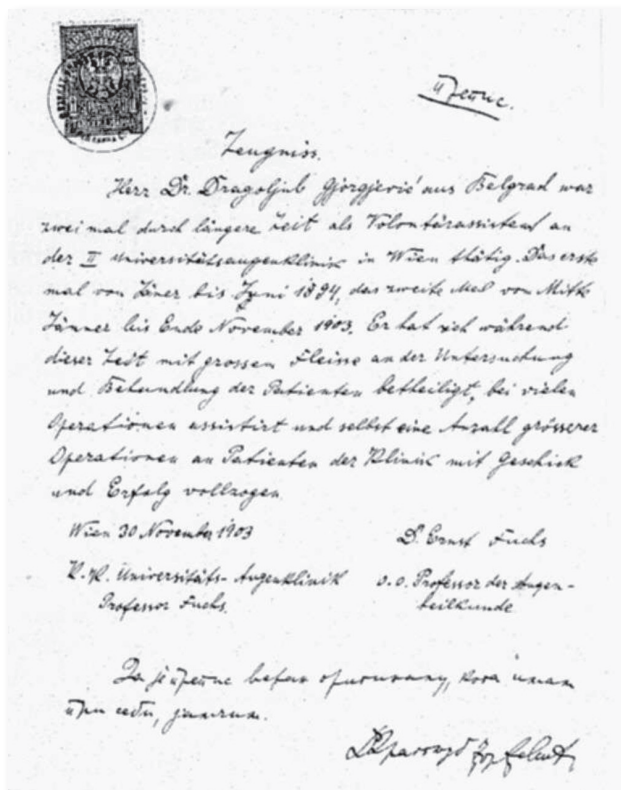 препис.
Zeugniss.
Herr Dr. Dragoljub Gjorgjević aus Belgrad war
zweimal durch längere Zeit als Volontärassistent an
der II Universitätsaugenklinik in Wien thätig. Das erste
mal von Jäner bis Juni 1894, das zweite Mal von Mitte
Jänner bis Ende November 1903. Er hat sich während
dieser Zeit mit grossem Fleisse an der Untersuchung
und Behandlung der Patienten betheiligt, bei vielen
Operationen assistirt und selbst eine Anzahl grösserer
Operationen an Patienten der Klinik mit Geschick
und Erfolg vollzogen
Wien 30 November 1903
D. Ernst Fuchs
K. K. Universitäts-Augenklinik
o. o. Professor der Augen-
Professor Fuchs.
heilkunde
Да је препис веран оригиналу, кога имам
при себи, јамчим.